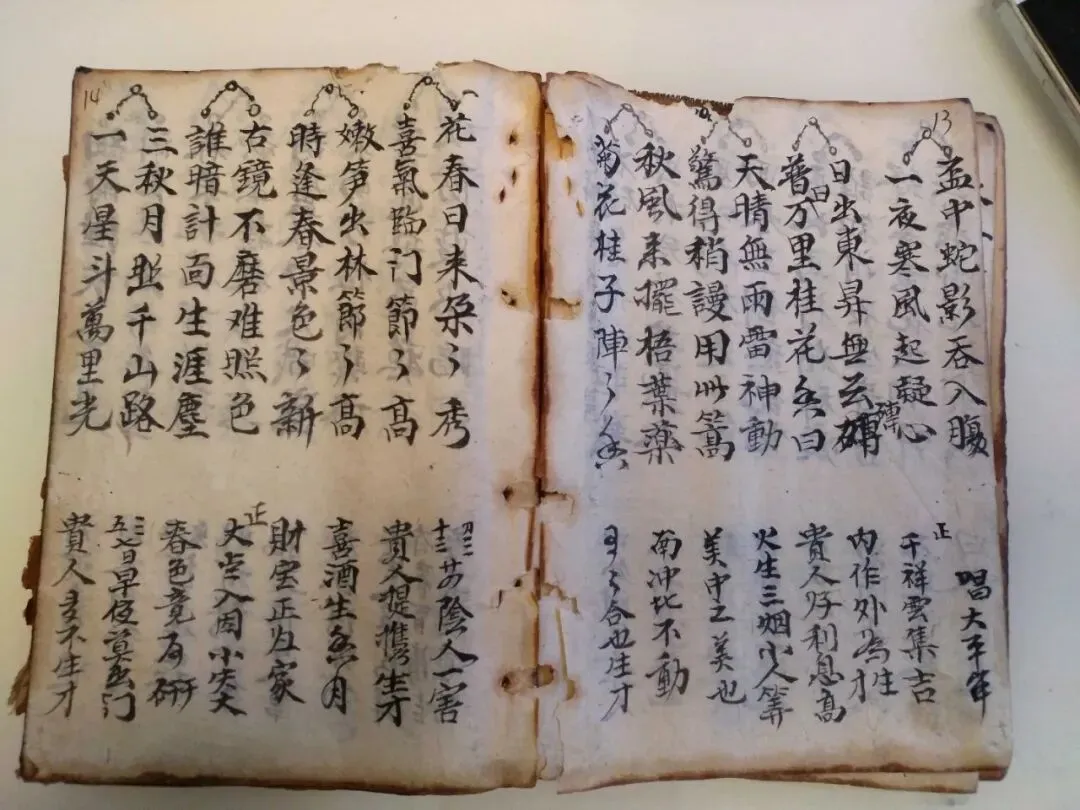 13
盃中蛇影吞入腹
一夜寒風起疑心
日出東昇無云磚
普万里桂花香曰
天晴無雨雷神動
驚得稍謾用此篙
秋風来擺梧葉藥
菊花桂子陣々香
唱太平年
正
千祥雲集吉
内作外為生才
貴人好利息高
火生三烟小人弄
美中之美也
南冲北不動
日々合也生才
14
花春日来朶々秀
喜氣臨门節々高
嫩笋出林節々高
時逢春景色々新
古鏡不磨难照色
誰暗計面生涯塵
三秋月照千山路
一天星斗萬里光
十三 廿四陰人一害
貴人提携生才
喜酒生香月
財宝正归家
正
春色竟有研
貴人多不生才